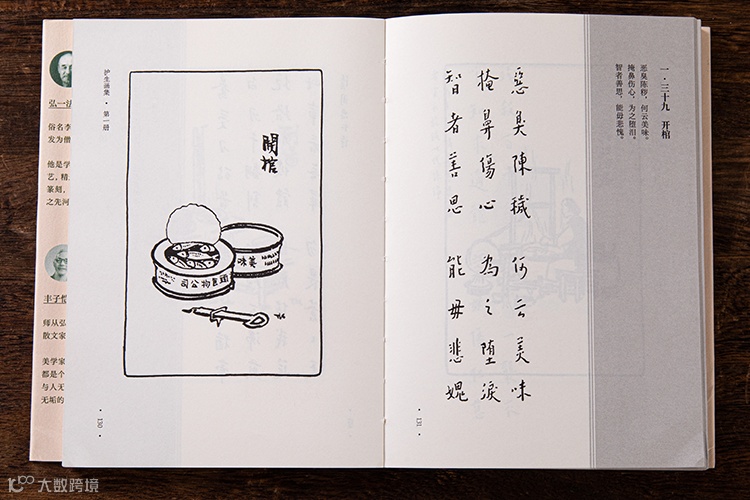 弘一法
俗名李
发为僧
他是学
艺，精
篆刻，
之先河
丰子恺
师从弘
散文家
美学家
都是个
与人无
无垢的
护生画集 · 第一册
開棺
· 130 ·
一·三十九 开棺
恶臭陈秽，何云美味。
掩鼻伤心，为之堕泪。
智者善思，能毋悲愧。
惡臭陳穢 何云美味
掩鼻傷心 為之墮淚
智者善思 能毋悲愧
· 131 ·
大数跨境